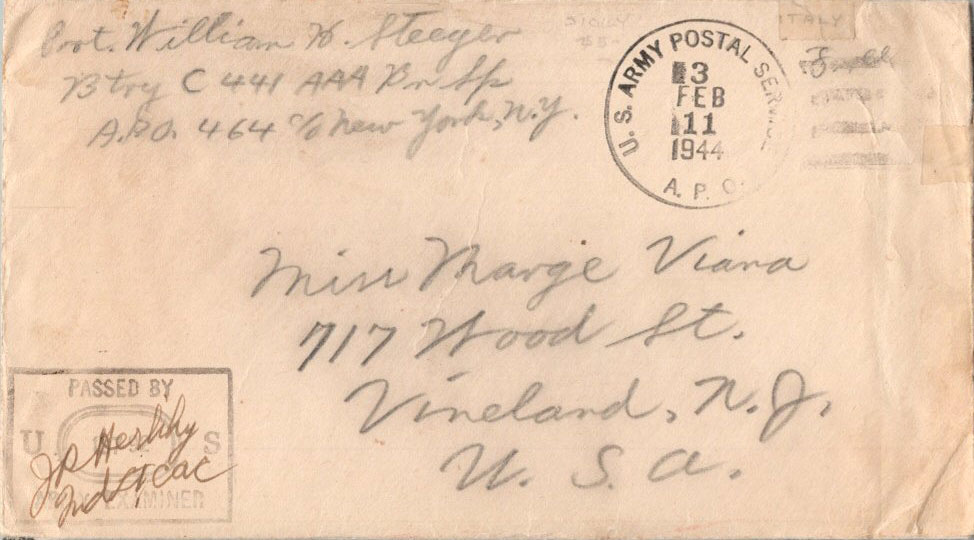 William H. Steeger
Btry C 441 AAA Bn Sp
A.P.O. 464 c/o New York, N.Y.
SICILY
ITALY
U. S. ARMY POSTAL SERVICE
3
FEB
11
1944
A. P. O.
Free
Miss Marge Viara
717 Wood St.
Vineland, N. J.
U. S. A.
PASSED BY
U S
ARMY EXAMINER
2nd Lt CAC